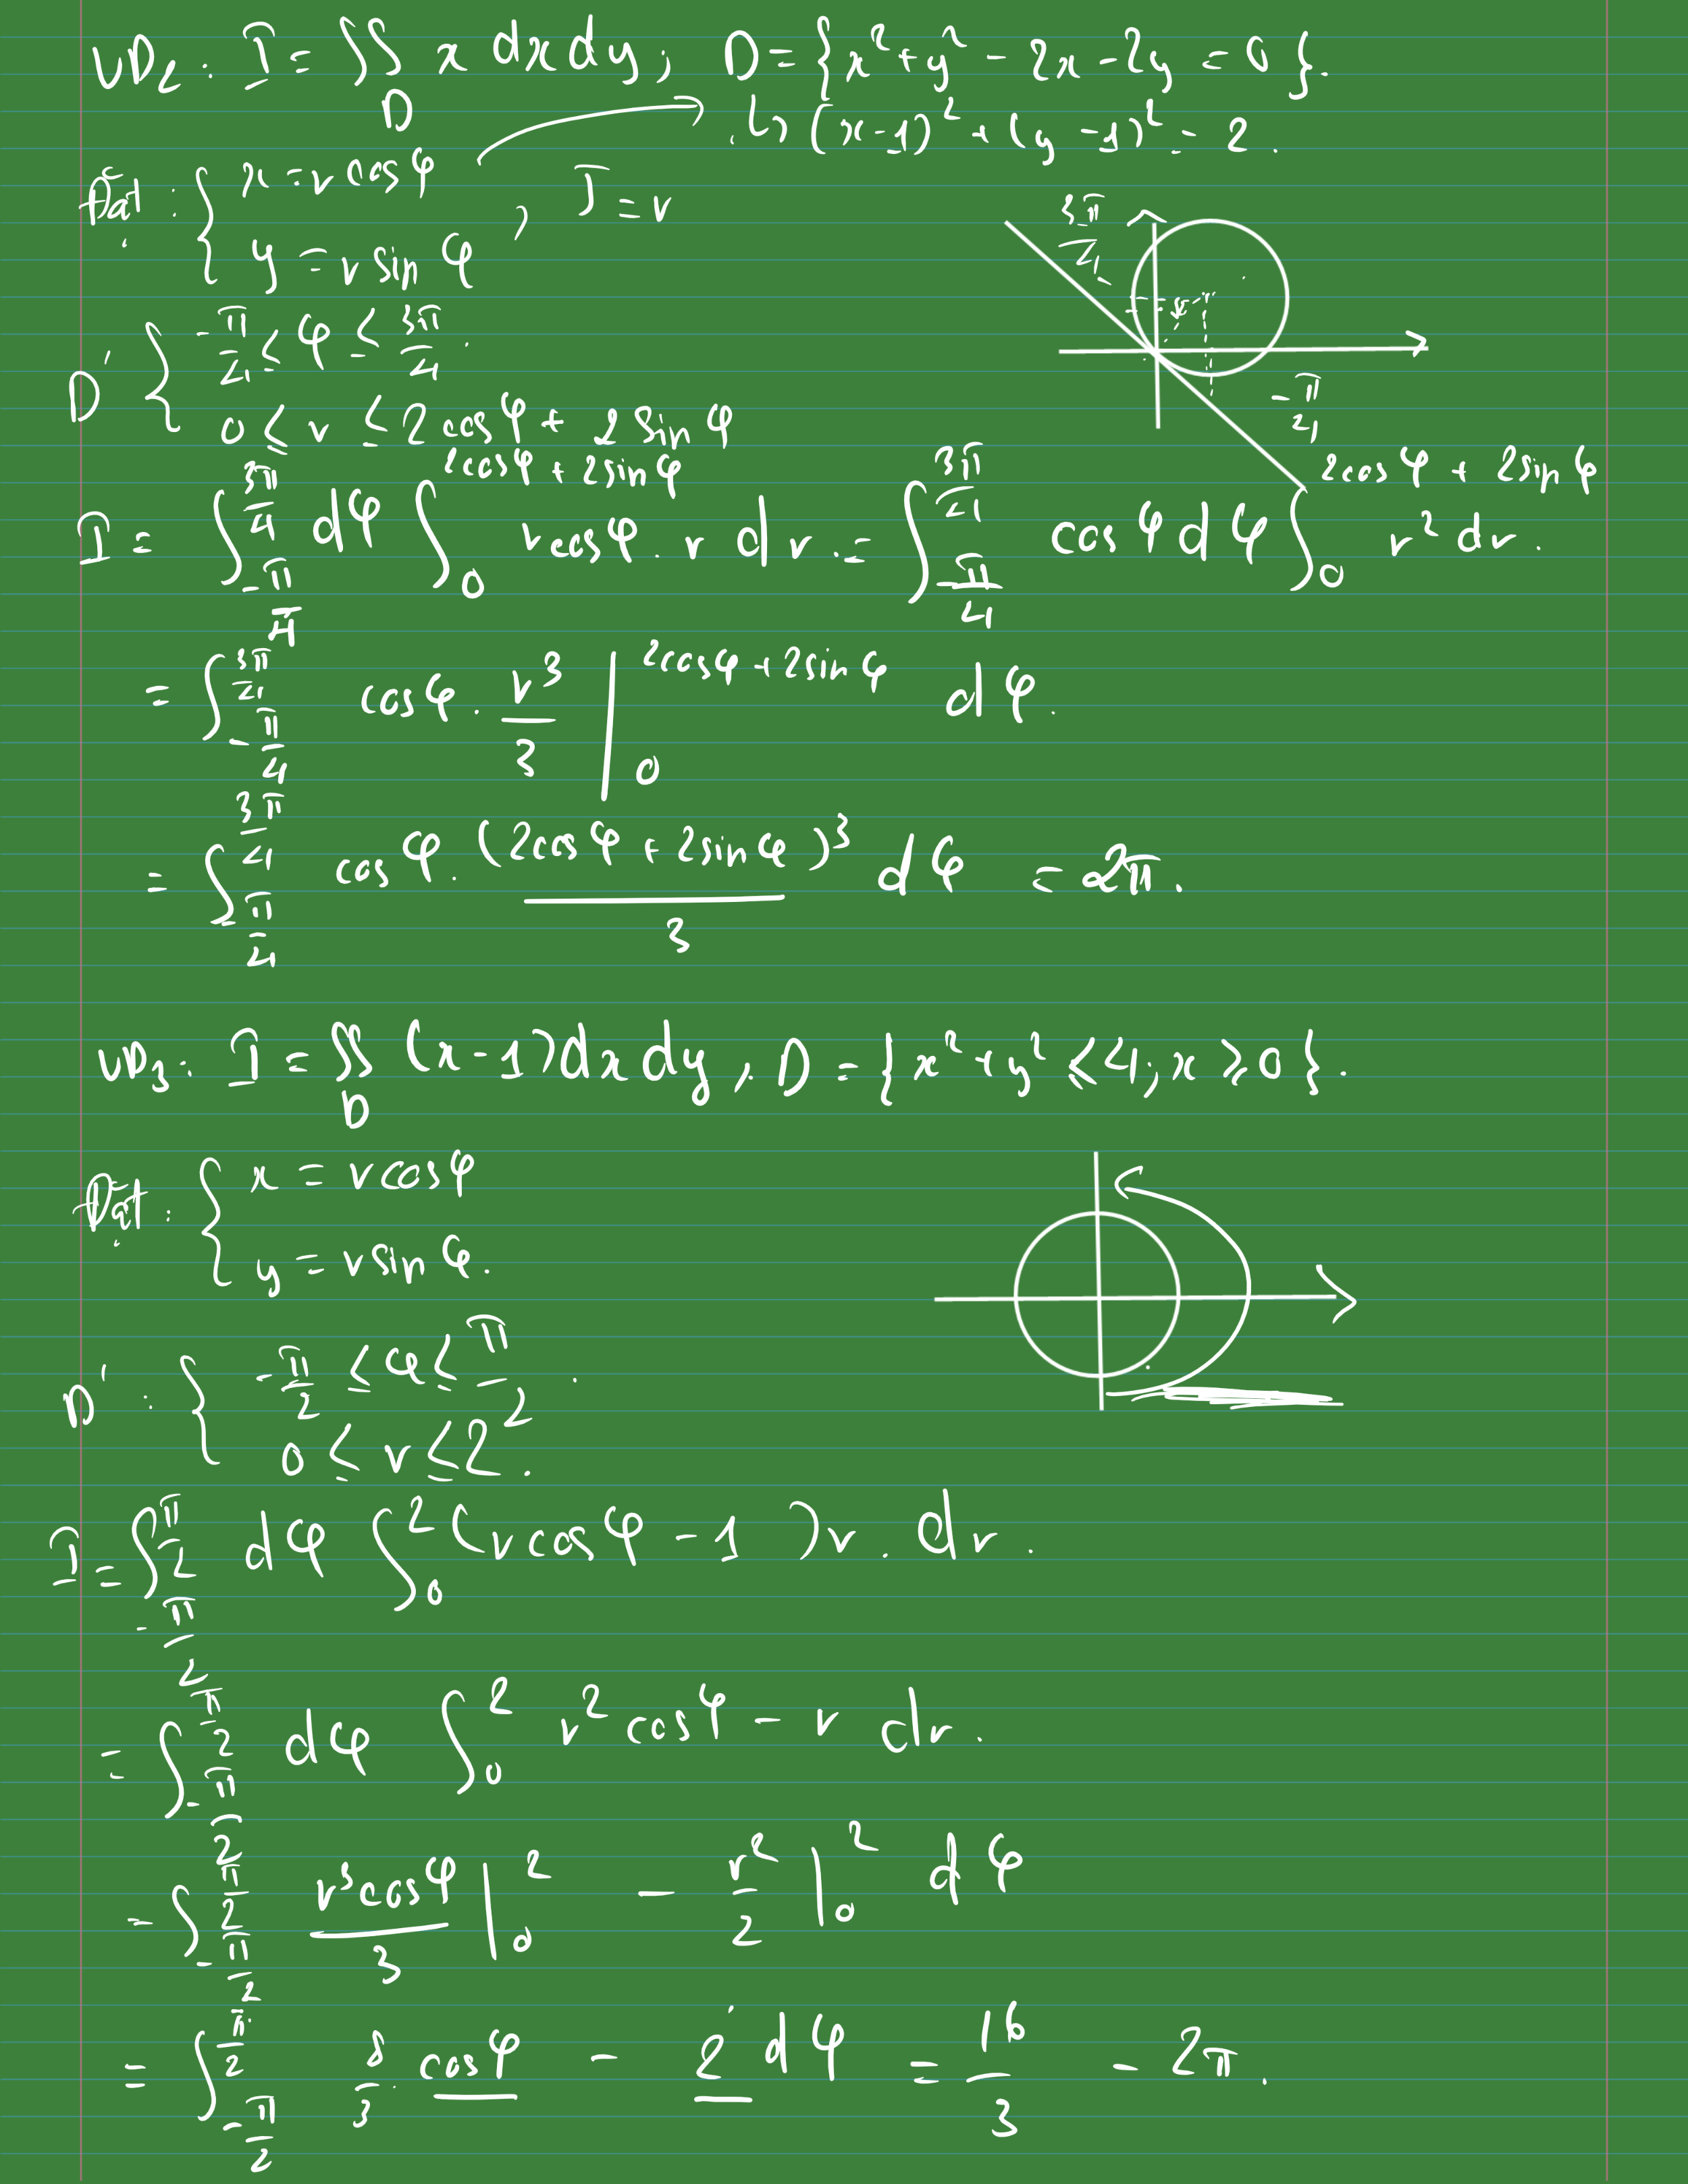 VD₂: I = ∬_D x dx dy; D = {x² + y² - 2x - 2y = 0}.
↳ (x-1)² + (y-1)² = 2.
Đặt: { x = r cosφ
y = r sinφ ; J = r
3π/4
D' { -π/4 ≤ φ ≤ 3π/4.
0 ≤ r ≤ 2cosφ + 2sinφ
-π/4
I = ∫_{-π/4}^{3π/4} dφ ∫_0^{2cosφ + 2sinφ} r cosφ . r dr = ∫_{-π/4}^{3π/4} cosφ dφ ∫_0^{2cosφ + 2sinφ} r² dr.
= ∫_{-π/4}^{3π/4} cosφ . r³/3 |_0^{2cosφ + 2sinφ} dφ.
= ∫_{-π/4}^{3π/4} cosφ . (2cosφ + 2sinφ)³/3 dφ = 2π.
VD₃: I = ∬_D (x-1) dx dy, D = {x² + y² ≤ 4; x ≥ 0}.
Đặt: { x = r cosφ
y = r sinφ.
D': { -π/2 ≤ φ ≤ π/2.
0 ≤ r ≤ 2.
I = ∫_{-π/2}^{π/2} dφ ∫_0^2 (r cosφ - 1) r . dr.
= ∫_{-π/2}^{π/2} dφ ∫_0^2 r² cosφ - r dr.
= ∫_{-π/2}^{π/2} r³cosφ/3 |_0^2 - r²/2 |_0^2 dφ
= ∫_{-π/2}^{π/2} 8/3 . cosφ - 2 dφ = 16/3 - 2π.